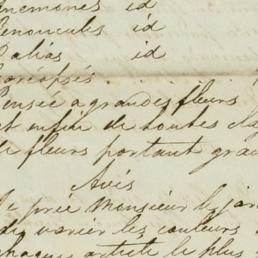 nemones id
enoncules id
alias id
oreopsis
Pensée a grandes fleurs
et enfin de toutes
de fleurs portant grai
Avis
Je prie Monsieur le jar
de varier les couleurs
chaque article le plus